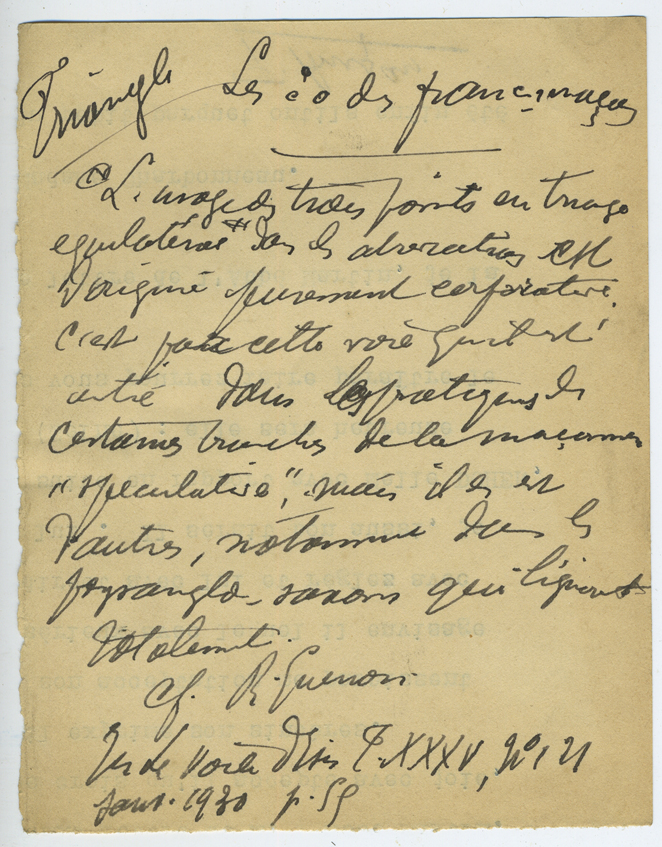 Triangle Les ∴ des francs-maçons
"L'usage des trois points en triangle
équilatéral dans les abréviations est
d'origine purement corporative,
c'est par cette voie qu'il est
entré dans les pratiques de
certaines branches de la maçonnerie
"spéculative", mais il en est
d'autres, notamment dans les
pays anglo-saxons qui l'ignorent
totalement.
Cf. R. Guenon
Voile d'Isis T. XXXV, N° 121
Janv. 1930 p. 59